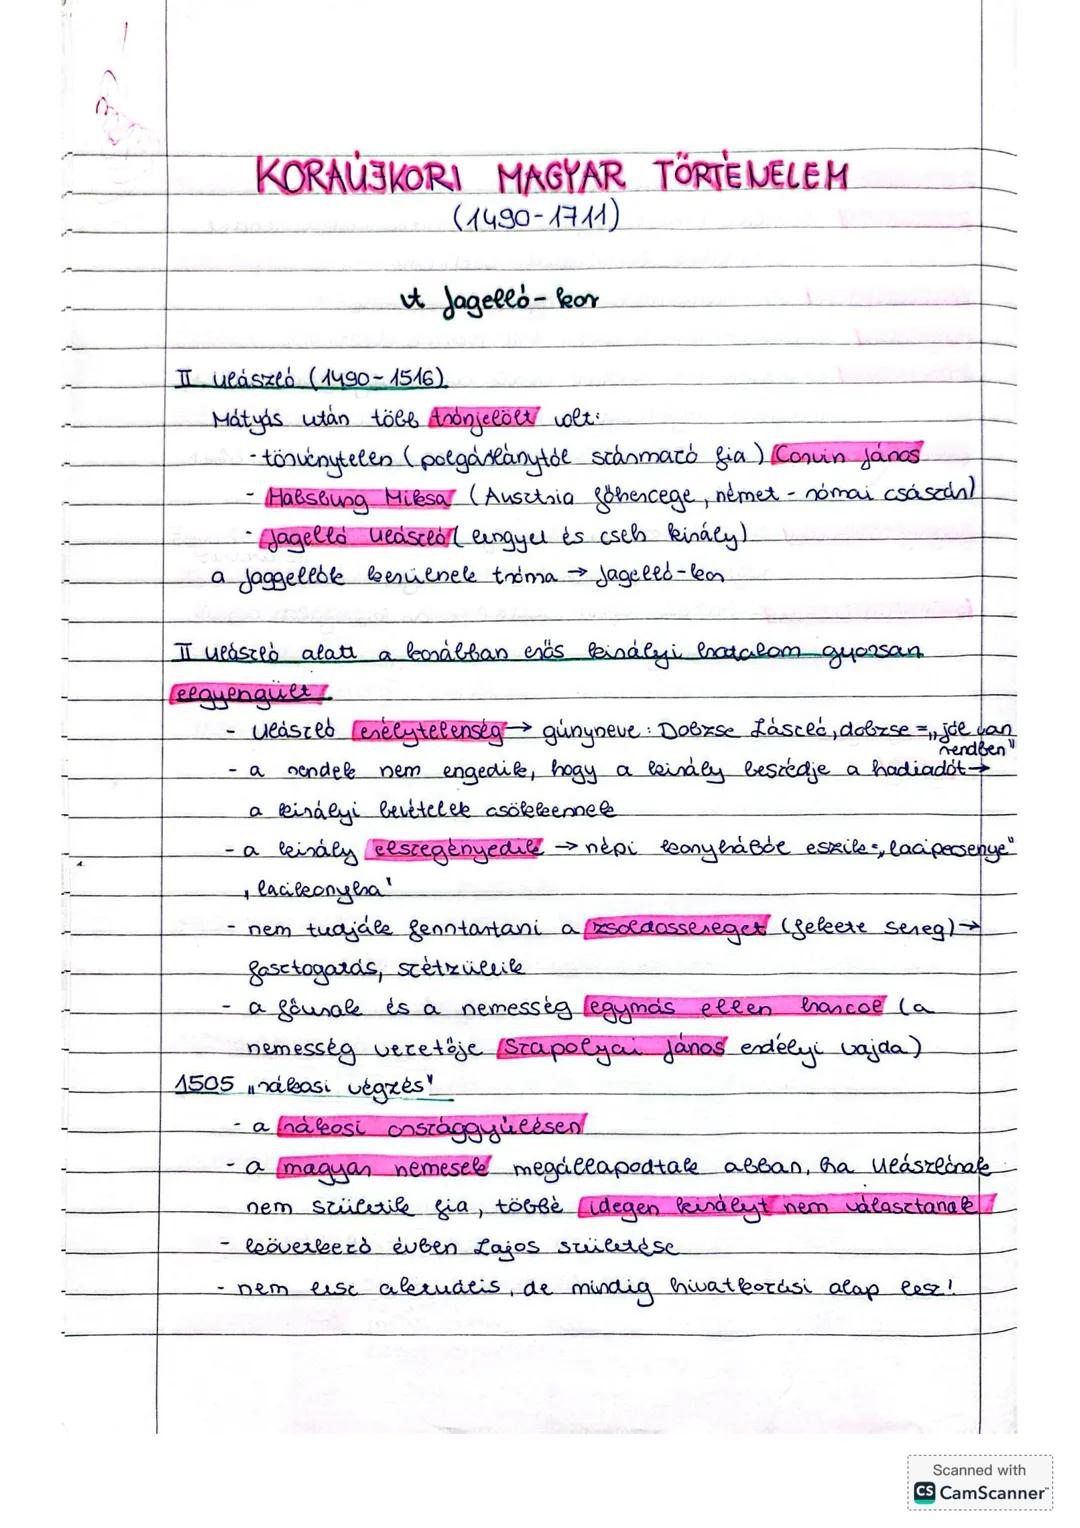 KORAÚJKORI MAGYAR TÖRTÉNELEM
(1490-1711)
A Jagelló-kor
II Ulászló (1490-1516)
Mátyás után több trónjelölt volt:
- törvénytelen (polgárlánytól származó fia) Corvin János
- Habsburg Miksa (Ausztria főhercege, német-római császár)
- Jagelló Ulászló (lengyel és cseh király)
a Jaggellók kerülnek trónra → Jagelló-kor
II Ulászló alatt a korábban erős királyi hatalom gyorsan
elgyengült
- Ulászló erélytelenség → gúnyneve: Dobzse László, dobzse = „jól van
rendben"
- a rendek nem engedik, hogy a király beszedje a hadiadót →
a királyi bevételek csökkennek
- a király elszegényedik → népi konyhából eszik = „lacipecsenye"
, lacikonyha'
- nem tudják fenntartani a zsoldossereget (fekete sereg) →
fosztogatás, szétzüllik
- a főurak és a nemesség egymás ellen harcol (a
nemesség vezetője Szapolyai János erdélyi vajda)
1505 „rákosi végzés"
- a rákosi országgyűlésen
- a magyar nemesek megállapodtak abban, ha Ulászlónak
nem születik fia, többé idegen királyt nem választanak
- következő évben Lajos születése
- nem lesz aktuális, de mindig hivatkozási alap lesz!
Scanned with
CS CamScanner